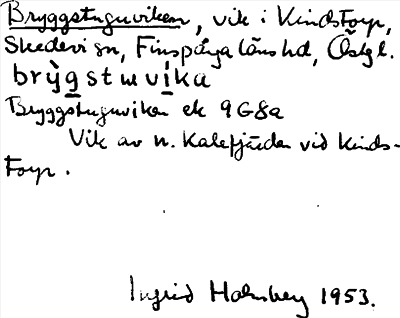 Bryggstuguviken, vik i Kindstorp,
Skedevi sn, Finspånga läns hd, Östgl.
brỳgstuvíka
Bryggstuguviken ek 9G8a
Vik av n. Kalvfjärden vid Kinds-
torp.
Ingrid Holmberg 1953.